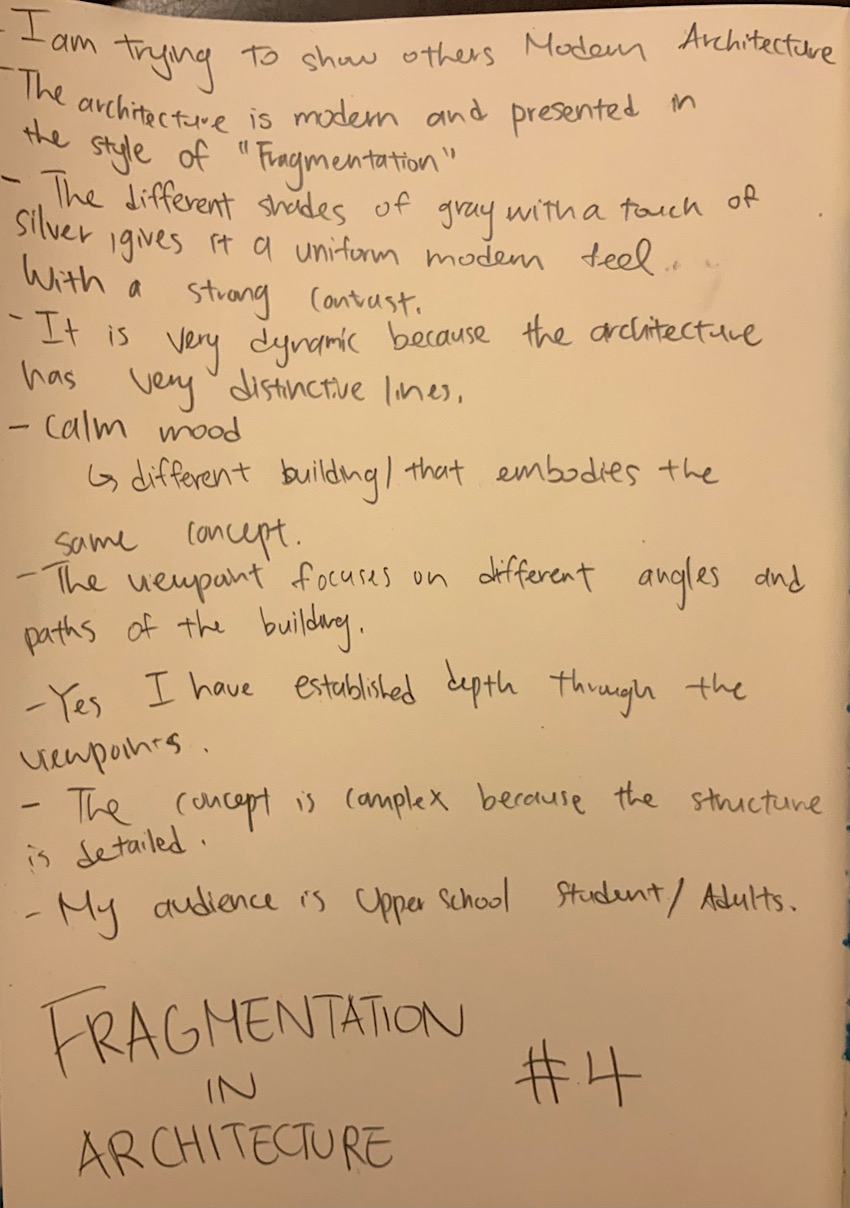 - I am trying to show others Modern Architecture
- The architecture is modern and presented in
the style of "Fragmentation"
- The different shades of gray with a touch of
silver, gives it a uniform modern feel.
With a strong contrast.
- It is very dynamic because the architecture
has very distinctive lines.
- Calm mood
↳ different building/ that embodies the
same concept.
- The viewpoint focuses on different angles and
paths of the building.
- Yes I have established depth through the
viewpoints.
- The concept is complex because the structure
is detailed.
- My audience is Upper School Student/ Adults.
FRAGMENTATION
IN
ARCHITECTURE
#4